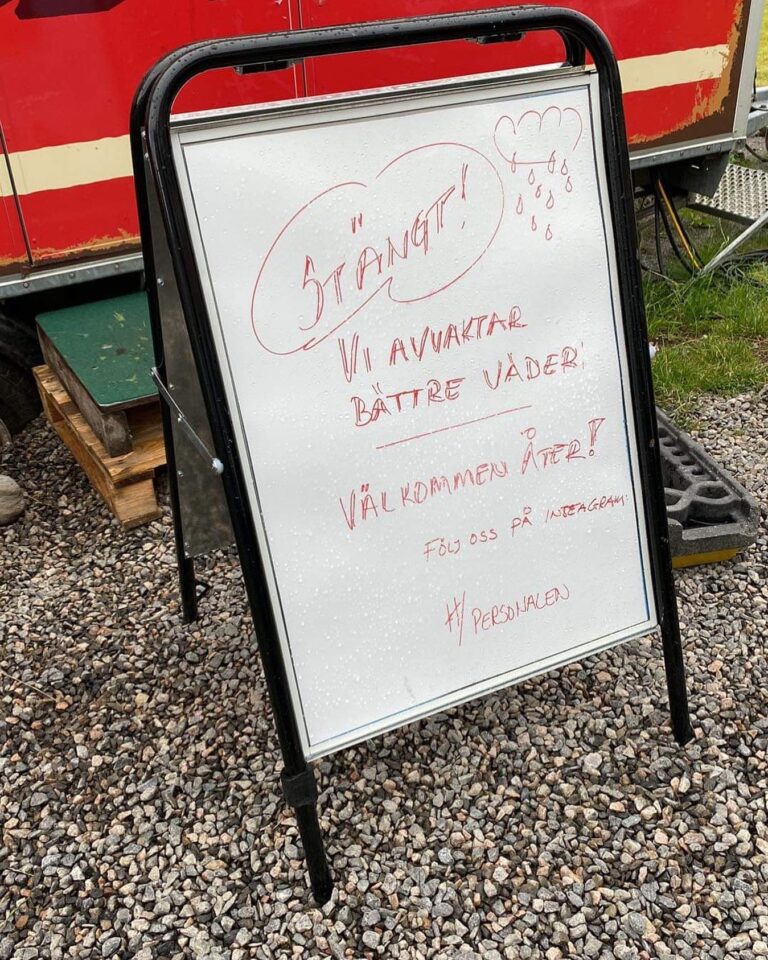 STÄNGT!
VI AVVAKTAR
BÄTTRE VÄDER!
VÄLKOMMEN ÅTER!
FÖLJ OSS PÅ INSTAGRAM.
H/ PERSONALEN